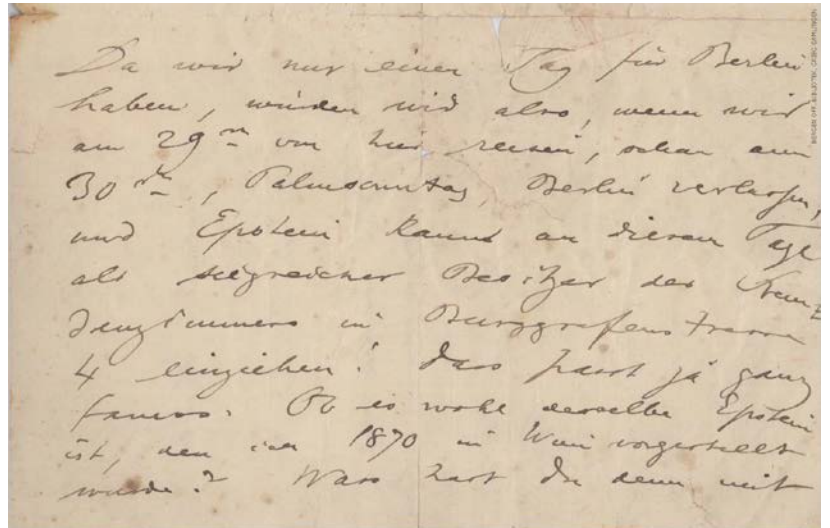 Da wir nur einen Tag für Berlin
haben, würden wir also, wenn wir
am 29ten von hier reisen, schon am
30ten, Palmsonntag, Berlin verlassen,
und Epstein kann an diesem Tage
als siegreicher Besitzer des
in Burggrafenstrasse
4 einziehen! Dass passt ja ganz
famos. Ob es wohl derselbe Epstein
ist, den ich 1870 in Wien vorgestellt
wurde? Was hast du denn mit
BERGEN OFF. BIBLIOTEK, GRIEG-SAMLINGEN